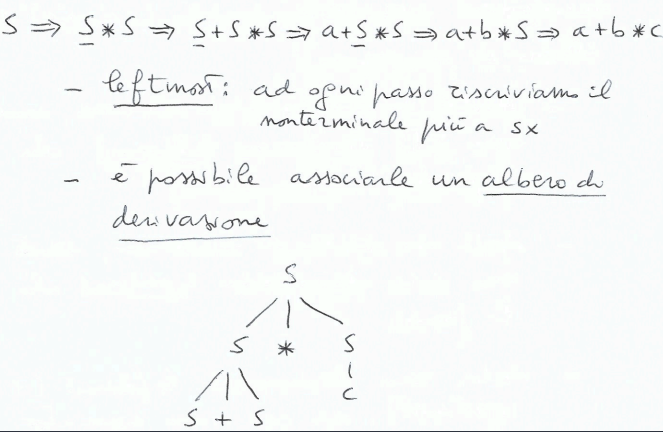 S ⇒ S * S ⇒ S + S * S ⇒ a + S * S ⇒ a + b * S ⇒ a + b * c
- leftmost: ad ogni passo riscriviamo il
nonterminale più a sx
- è possibile associarle un albero di
derivazione
S
S * S
c
S + S